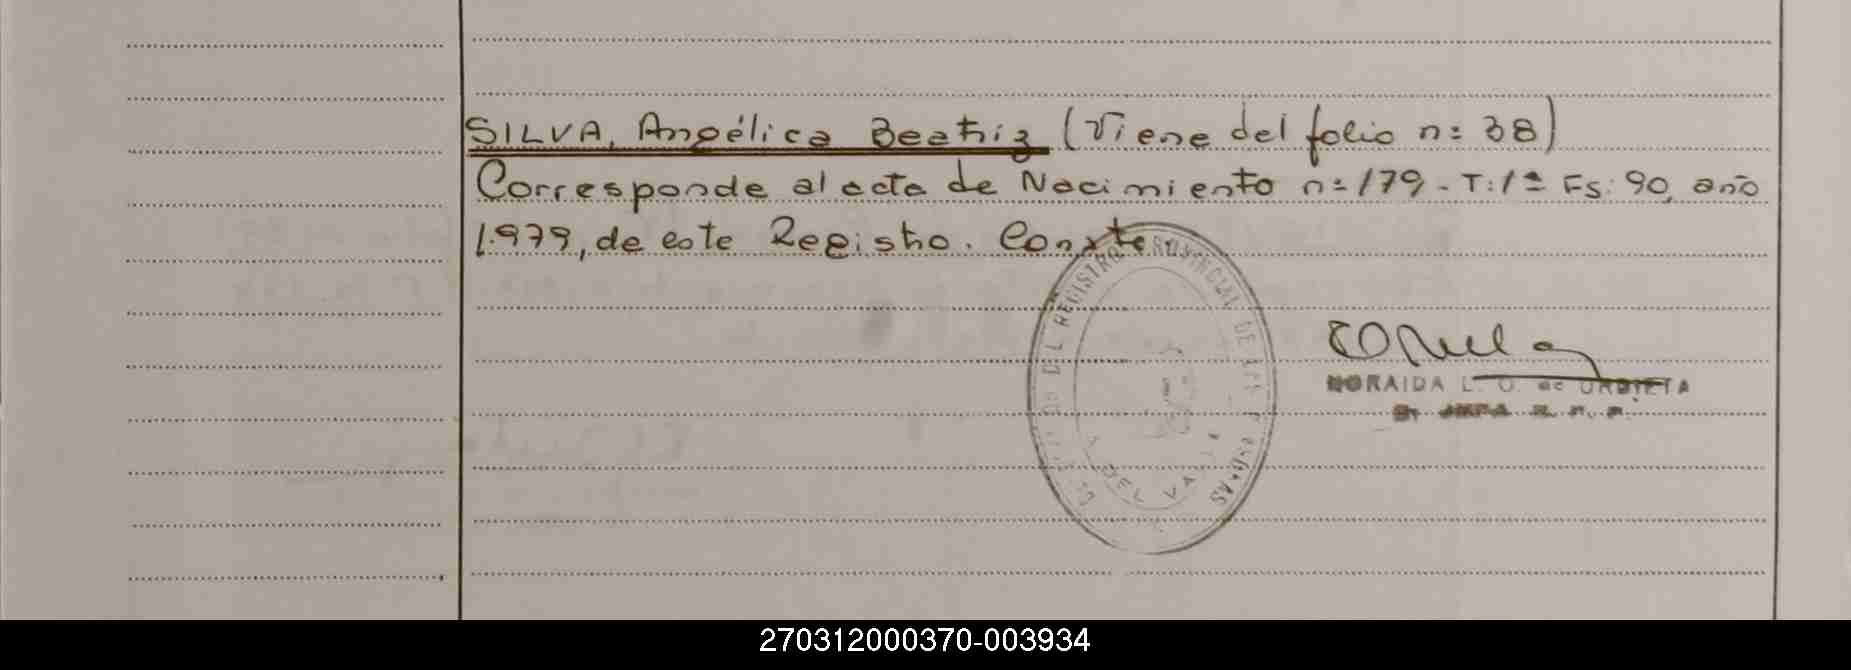 SILVA, Angélica Beatriz (Viene del folio n= 38)
Corresponde al acta de Nacimiento n= 179 - T: 1ª Fs: 90, año
1.979, de este Registro. Conste
DEL REGISTRO PROVINCIAL DE LAS PERSONAS
DEL VALLE
NORAIDA L. O. de URBIETA
270312000370-003934